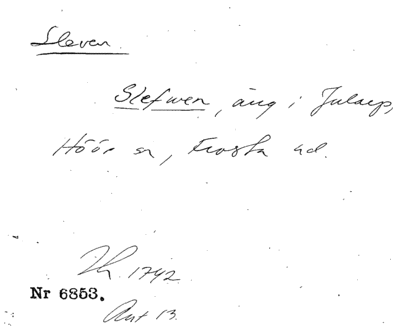 Sleven.
Slefwen, äng i Jularp,
Höör sn, Frosta hd.
Lh. 1742
Nr 6853.
Art 13.